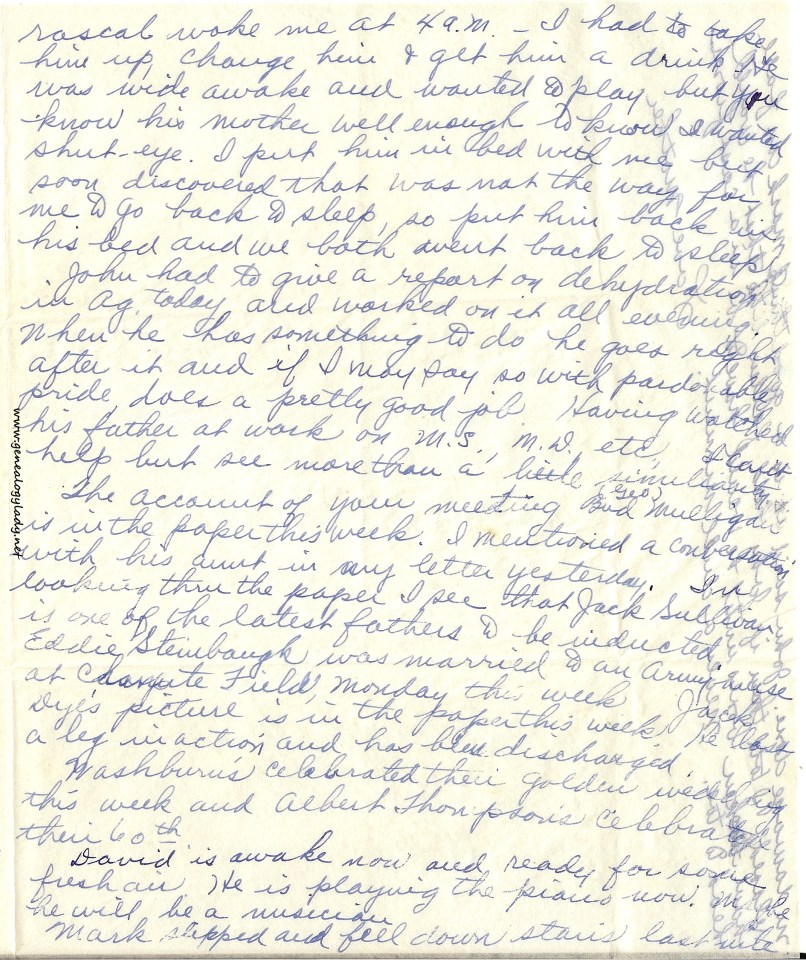 rascal woke me at 4 a.m. - I had to take
him up, change him & get him a drink. He
was wide awake and wanted to play but you
know his mother well enough to know I wanted
shut-eye. I put him in bed with me but
soon discovered that was not the way for
me to go back to sleep, so put him back in
his bed and we both went back to sleep.
John had to give a report on dehydration
in Ag. today and worked on it all evening.
When he has something to do he goes right
after it and if I may say so with pardonable
pride, does a pretty good job. Having watched
his father at work on M.S., M.D. etc, I can't
help but see more than a little similiarity.
(Geo)
The account of your meeting Bud Mulligan
is in the paper this week. I mentioned a conversation
with his aunt in my letter yesterday. In
looking thru the paper I see that Jack Sullivan
is one of the latest fathers to be inducted.
Eddie Steinbaugh was married to an Army nurse
at Chanute Field, Monday this week. Jack
Dye's picture is in the paper this week. He lost
a leg in action and has been discharged.
Washburn's celebrated their golden wedding
this week and Albert Thompson's celebrate
their 60th.
David is awake now and ready for some
fresh air. He is playing the piano now. Maybe
he will be a musician.
Mark slipped and fell down stairs last nite
www.genealogylady.net